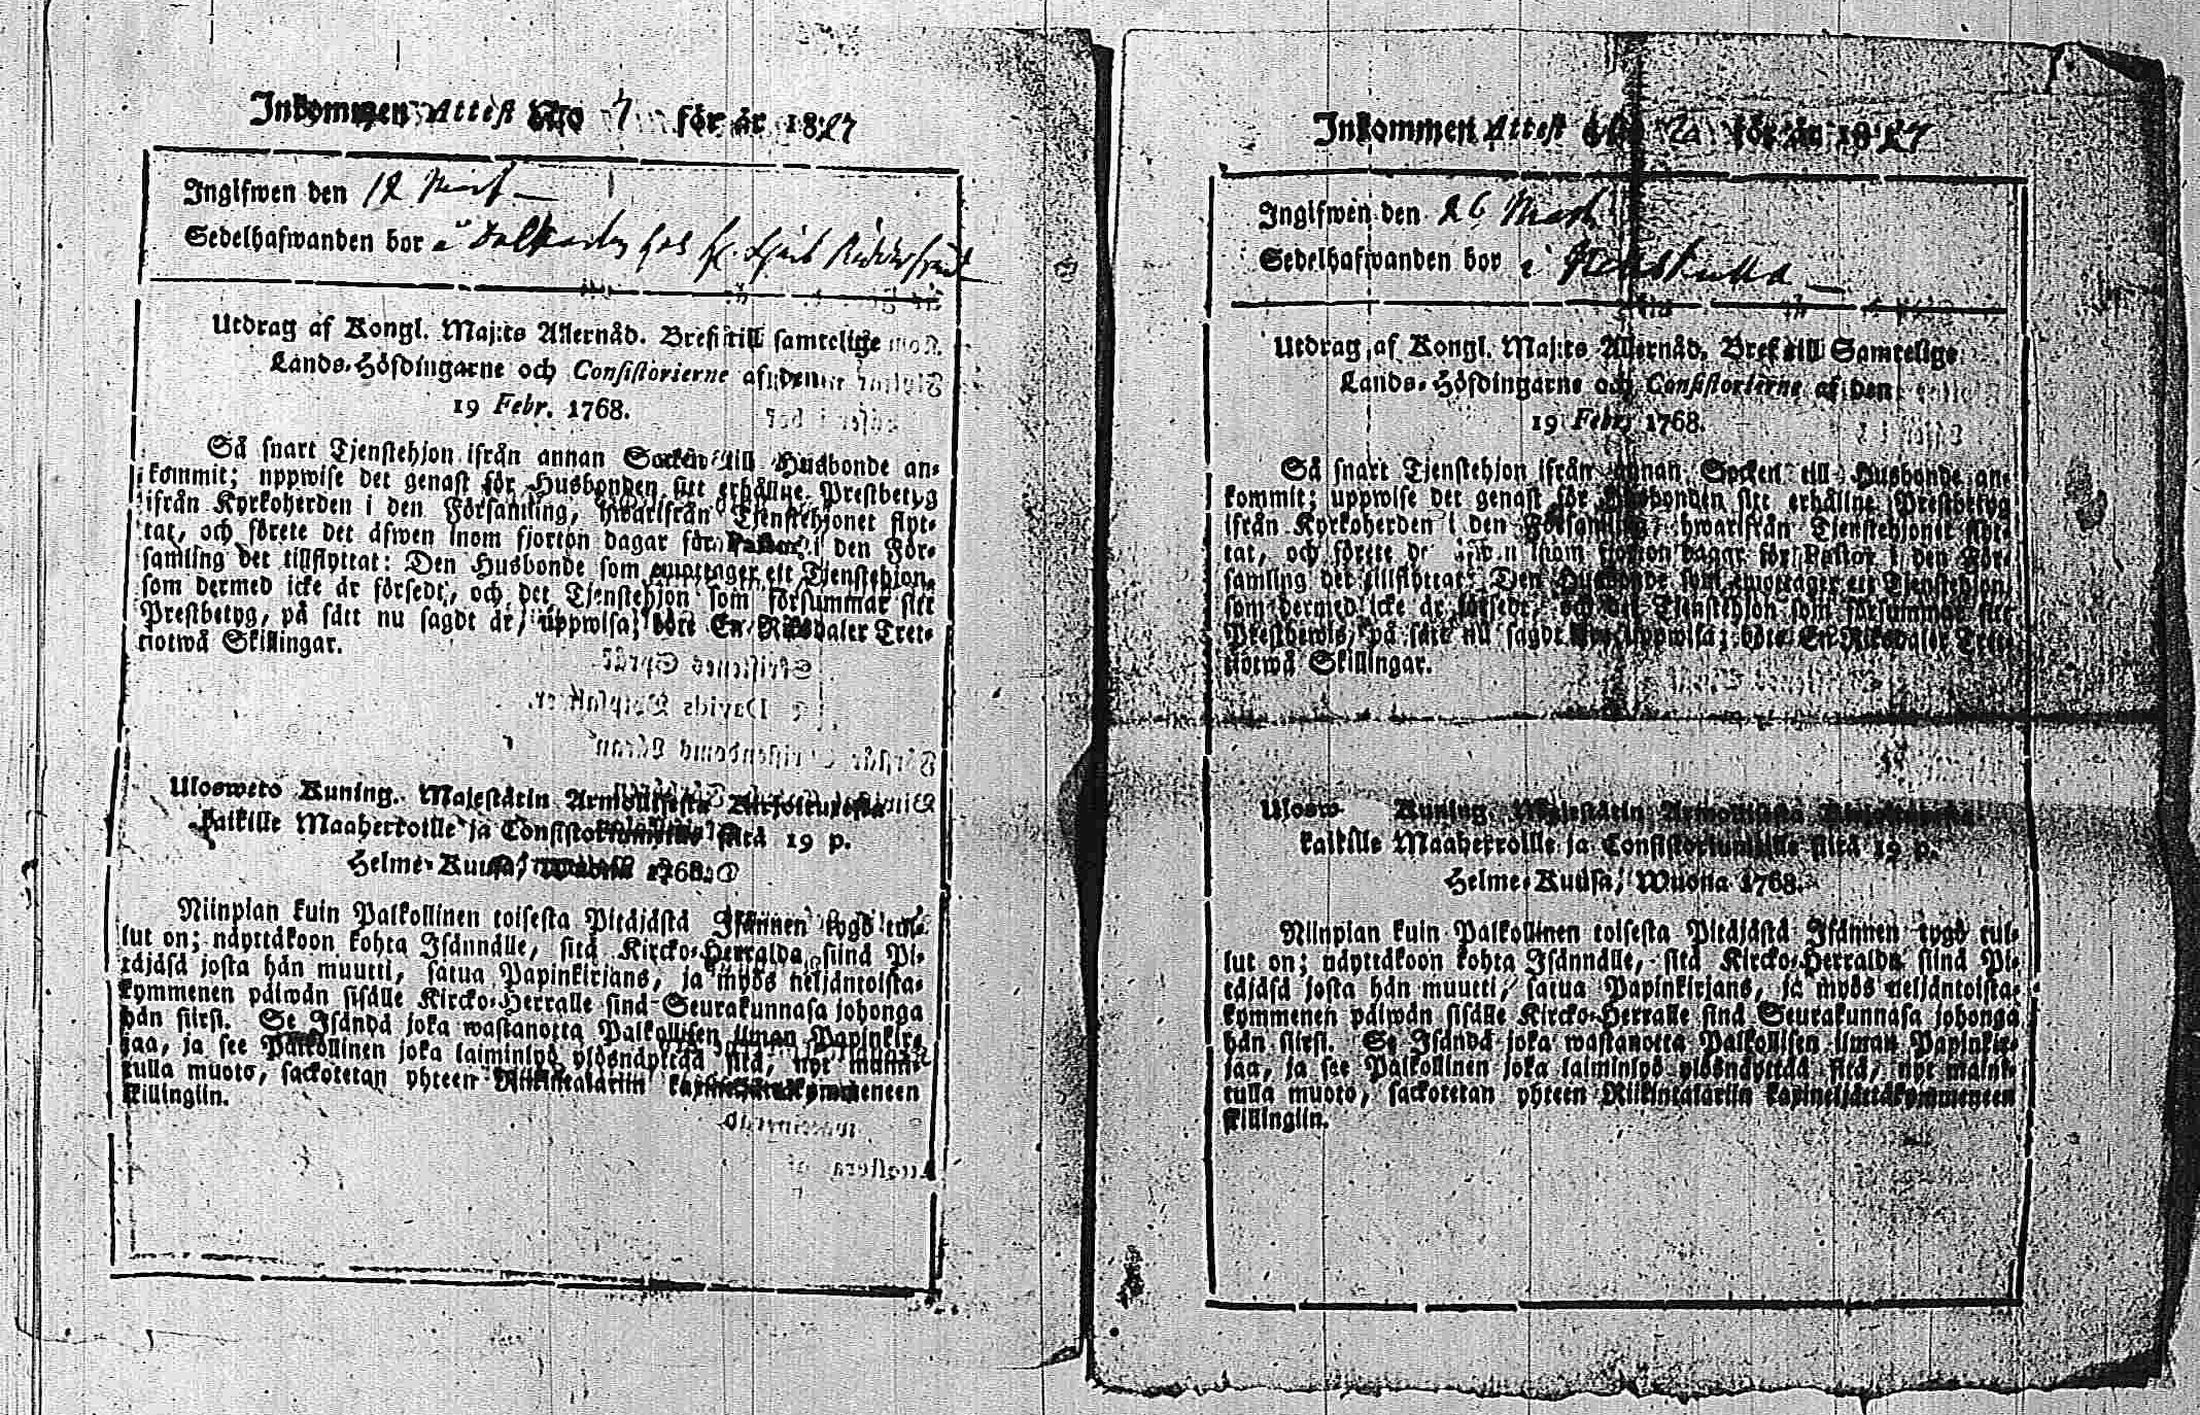 Inkommen Attest No 7 för år 1827
Inglfwen den 12 Mart
Sedelhafwanden bor å hos
Utdrag af Kongl. Maj:ts Allernåd. Bref till samtelige
Lands-Höfdingarne och Consistorierne af den
19 Febr. 1768.
Så snart Tjenstehjon ifrån annan Socken till Husbonde an-
kommit; uppwise det genast för Husbonden sitt erhållne Prestbetyg
ifrån Kyrkoherden i den Församling, hwarifrån Tjenstehjonet flyt-
tat, och förete det äfwen inom fjorton dagar för Pastor i den För-
samling det tillflyttat: Den Husbonde som emottager ett Tjenstehjon,
som dermed icke är försedt, och det Tjenstehjon som försummar sitt
Prestbetyg, på sätt nu sagdt är, uppwisa; böte En Riksdaler Tret-
tiotwå Skillingar.
Ulosweto Kuning. Majestätin Armollisesta Kirjoituxesta
kaikille Maaherroille ja Consistoriumille siitä 19 p.
Helme-Kuusa, Wuonna 1768.
Niinpian kuin Palkollinen toisesta Pitäjästä Isännen tygö tul-
lut on; näyttäkoon kohta Isännälle, sitä Kircko-Herralda siinä Pi-
täjäsä josta hän muutti, saatua Papinkirjans, ja myös neljäntoista-
kymmenen päiwän sisälle Kircko-Herralle sinä Seurakunnasa johonga
hän siirsi. Se Isändä joka wastanotta Palkollisen ilman Papinkir-
jaa, ja see Palkollinen joka laiminlyö ylösnäyttää sitä, nyt maini-
tulla muoto, sackotetan yhteen Riikintalariin kaxineljättäkymmeneen
skillingiin.
Inkommen Attest för år 1827
Inglfwen den 26 Mart
Sedelhafwanden bor i
Utdrag af Kongl. Maj:ts Allernåd. Bref till Samtelige
Lands-Höfdingarne och Consistorierne af den
19 Febr. 1768.
Så snart Tjenstehjon ifrån annan Socken till Husbonde an-
kommit; uppwise det genast för Husbonden sitt erhållne Prestbetyg
ifrån Kyrkoherden i den Församling, hwarifrån Tjenstehjonet flyt-
tat, och förete det äfwen inom fjorton dagar för Pastor i den För-
samling det tillflyttat: Den Husbonde som emottager ett Tjenstehjon,
som dermed icke är försedt, och det Tjenstehjon som försummar sitt
Prestbewis, på sätt nu sagdt är, uppwisa; böte En Riksdaler Tret-
tiotwå Skillingar.
Ulosw Kuning. Majestätin Armollisesta Kirjoituxesta
kaikille Maaherroille ja Consistoriumille siitä 19 p.
Helme-Kuusa, Wuonna 1768.
Niinpian kuin Palkollinen toisesta Pitäjästä Isännen tygö tul-
lut on; näyttäkoon kohta Isännälle, sitä Kircko-Herralda siinä Pi-
täjäsä josta hän muutti, saatua Papinkirjans, ja myös neljäntoista-
kymmenen päiwän sisälle Kircko-Herralle sinä Seurakunnasa johonga
hän siirsi. Se Isändä joka wastanotta Palkollisen ilman Papinkir-
jaa, ja see Palkollinen joka laiminlyö ylösnäyttää sitä, nyt maini-
tulla muoto, sackotetan yhteen Riikintalariin kaxineljättäkymmeneen
skillingiin.